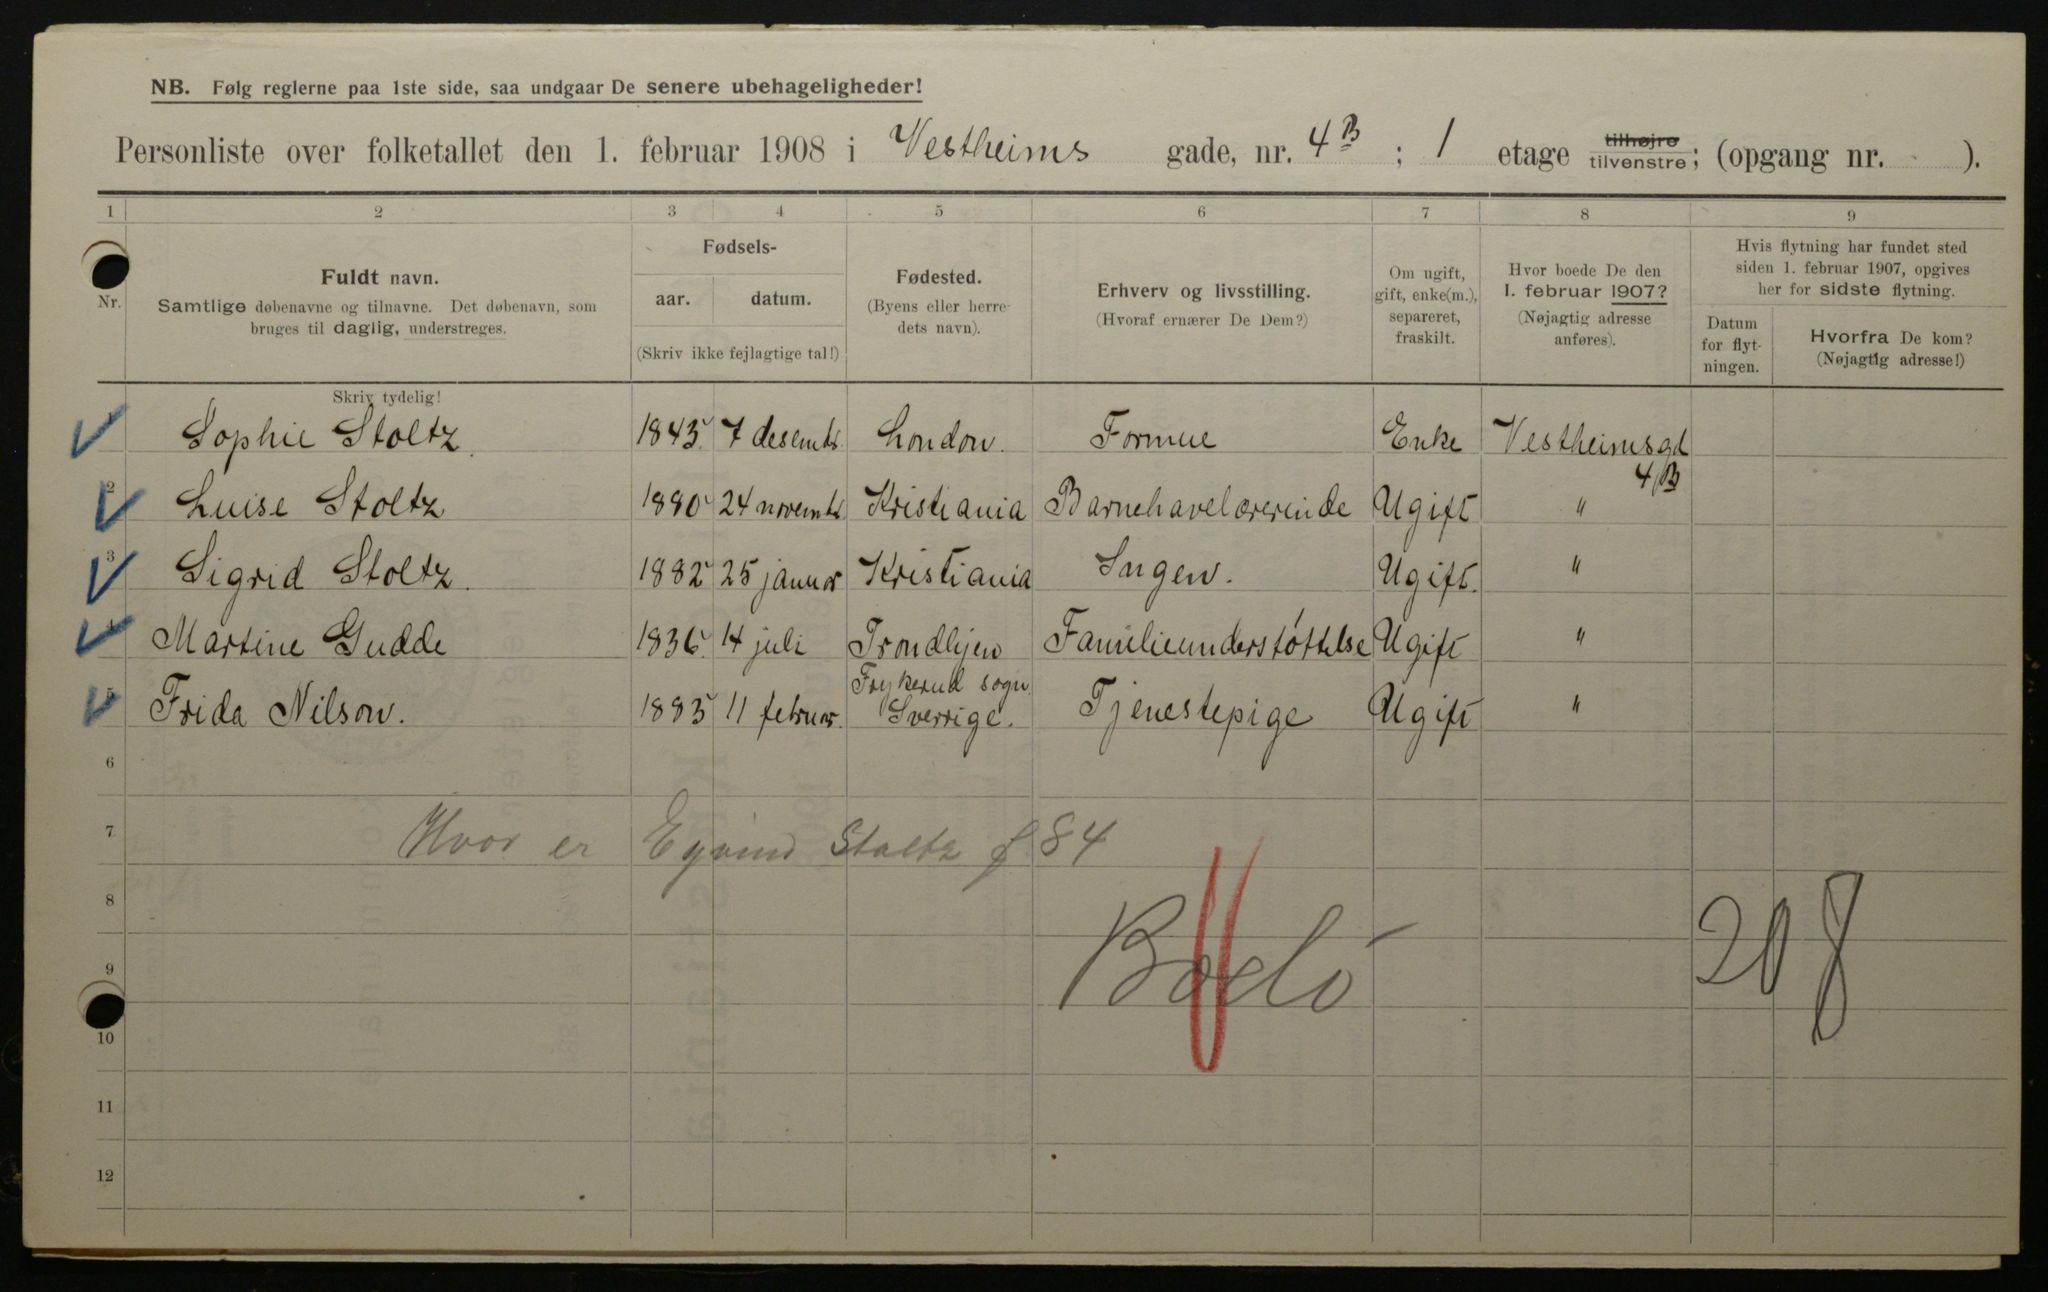 NB. Følg reglerne paa 1ste side, saa undgaar De senere ubehageligheder!
Personliste over folketallet den 1. februar 1908 i Vestheims gade, nr. 4B ; 1 etage tilhøjre tilvenstre; (opgang nr. ).
1 2 3 4 5 6 7 8 9
Nr.
Fuldt navn.
Samtlige døbenavne og tilnavne. Det døbenavn, som
bruges til daglig, understreges.
Fødsels-
aar. datum.
(Skriv ikke fejlagtige tal!)
Fødested.
(Byens eller herre-
dets navn).
Erhverv og livsstilling.
(Hvoraf ernærer De Dem?)
Om ugift,
gift, enke(m.),
separeret,
fraskilt.
Hvor boede De den
1. februar 1907?
(Nøjagtig adresse
anføres).
Hvis flytning har fundet sted
siden 1. februar 1907, opgives
her for sidste flytning.
Datum
for flyt-
ningen.
Hvorfra De kom?
(Nøjagtig adresse!)
Skriv tydelig!
1 Sophie Stoltz. 1845. 7 desembr. London. Formue Enke Vestheimsgd
4B
2 Luise Stoltz 1880 24 novembr. Kristiania Barnehavelærerinde Ugift "
3 Sigrid Stoltz. 1882 25 januar Kristiania Ingen. Ugift. "
4 Martine Gudde 1836. 14 juli Trondhjen Familieunderstøttelse Ugift "
Frykerud sogn.
5 Frida Nilson. 1883 11 februar. Sverrige. Tjenestepige Ugift "
6
7 Hvor er Eyvind Stoltz f 84
8
Bodó
208
9
10
11
12